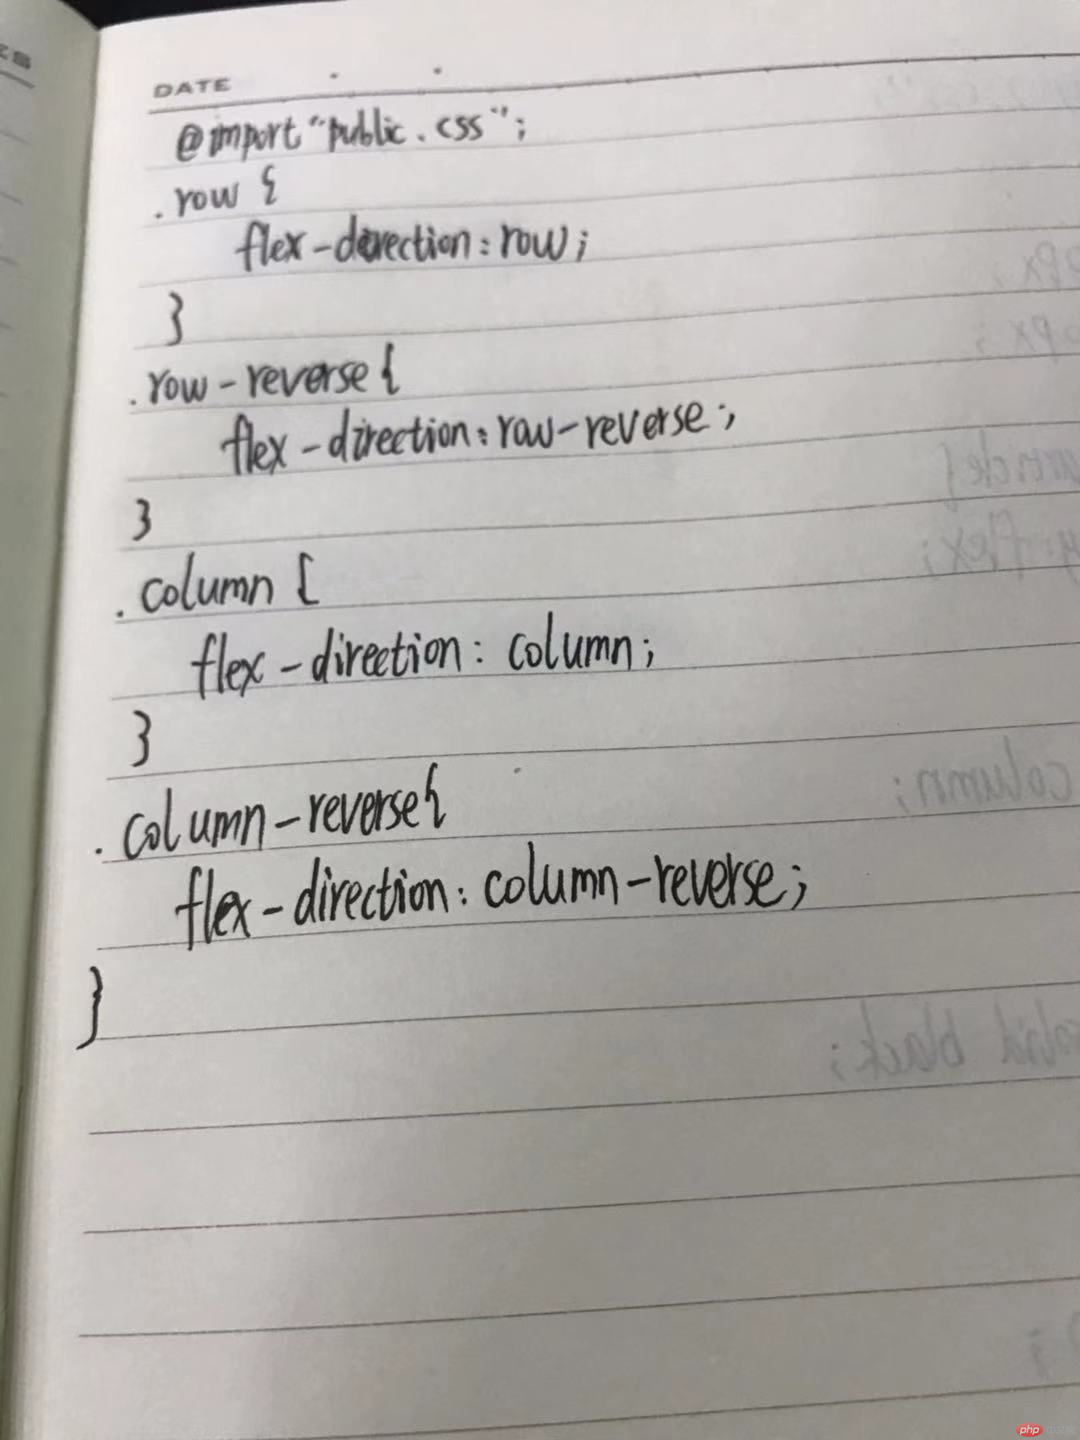 DATE
@import "public.css";
.row {
flex-direction: row;
}
.row-reverse{
flex-direction: row-reverse;
}
.column {
flex-direction: column;
}
.column-reverse{
flex-direction: column-reverse;
}
column;
solid black;
php